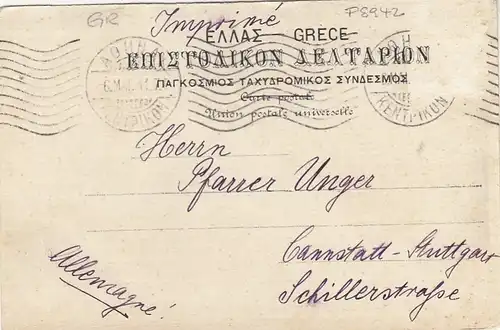 GR
P8942
Imprimé
ΕΛΛΑΣ GRECE
ΕΠΙΣΤΟΛΙΚΟΝ ΔΕΛΤΑΡΙΟΝ
ΠΑΓΚΟΣΜΙΟΣ ΤΑΧΥΔΡΟΜΙΚΟΣ ΣΥΝΔΕΣΜΟΣ
Carte postale
Union postale universelle
ΚΕΝΤΡΙΚΟΝ
Herrn
Pfarrer Unger
Cannstatt-Stuttgart
Schillerstraße
Allemagne!